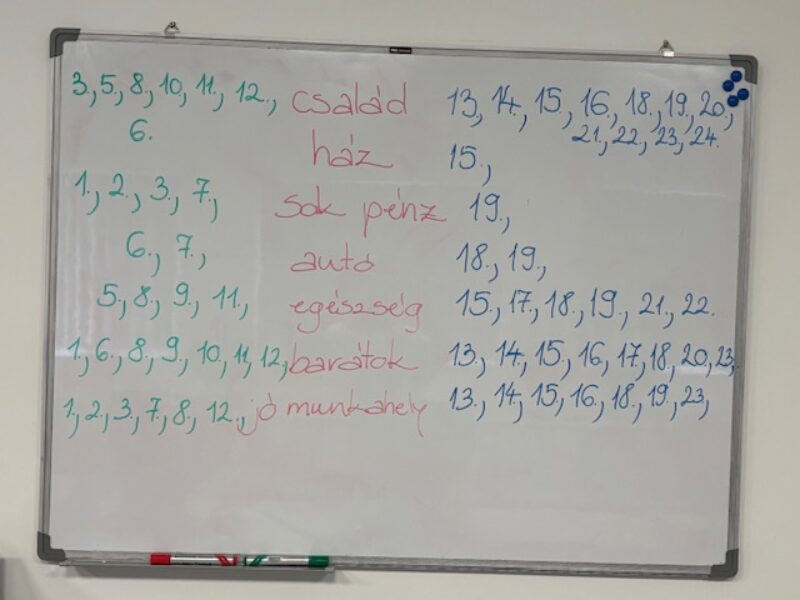 3., 5., 8., 10., 11., 12., család 13., 14., 15., 16., 18., 19., 20.,
21., 22., 23., 24.
6. ház 15.,
1., 2., 3., 7., sok pénz 19.,
6., 7., autó 18., 19.,
5., 8., 9., 11., egészség 15., 17., 18., 19., 21., 22.
1., 6., 8., 9., 10., 11., 12., barátok 13., 14., 15., 16., 17., 18., 20., 23.,
1., 2., 3., 7., 8., 12., jó munkahely 13., 14., 15., 16., 18., 19., 23.,